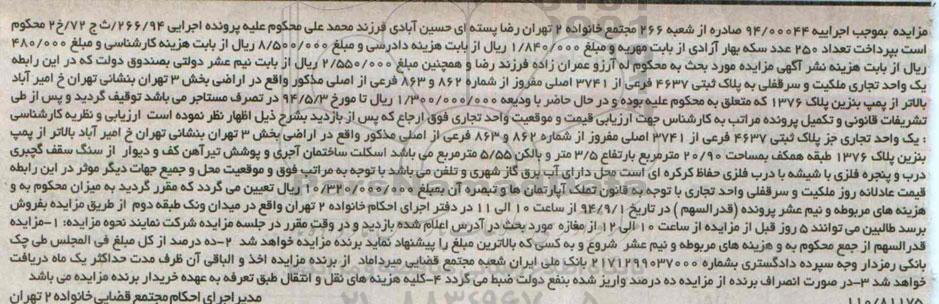 مزایده بموجب اجراییه ۹۴/۰۰۰۴۴ صادره از شعبه ۲۶۶ مجتمع خانواده ۲ تهران رضا پسته ای حسین آبادی فرزند محمد علی محکوم علیه پرونده اجرایی ۲۶۶/۹۴/ث ج ۷۲/خ۲ محکوم
است بپرداخت تعداد ۲۵۰ عدد سکه بهار آزادی از بابت مهریه و مبلغ ۱/۸۴۰/۰۰۰ ریال از بابت هزینه دادرسی و مبلغ ۸/۵۰۰/۰۰۰ ریال از بابت هزینه کارشناسی و مبلغ ۴۸۰/۰۰۰
ریال از بابت هزینه نشر آگهی مزایده مورد بحث به محکوم له آرزو عمران زاده فرزند رضا و همچنین مبلغ ۲/۵۵۰/۰۰۰ ریال از بابت نیم عشر دولتی بصندوق دولت که در این رابطه
یک واحد تجاری ملکیت و سرقفلی به پلاک ثبتی ۴۶۳۷ فرعی از ۳۷۴۱ اصلی مفروز از شماره ۸۶۲ و ۸۶۳ فرعی از اصلی مذکور واقع در اراضی بخش ۳ تهران بنشانی تهران خ امیر آباد
بالاتر از پمپ بنزین پلاک ۱۳۷۶ که متعلق به محکوم علیه بوده و در حال حاضر با ودیعه ۱/۳۰۰/۰۰۰/۰۰۰ ریال تا مورخ ۹۴/۵/۳ در تصرف مستاجر می باشد توقیف گردید و پس از طی
تشریفات قانونی و تکمیل پرونده مراتب به کارشناس جهت ارزیابی قیمت و موقعیت واحد تجاری فوق ارجاع که پس از بازدید بشرح ذیل اظهار نظر نموده است ارزیابی و نظریه کارشناسی
: یک واحد تجاری جز پلاک ثبتی ۴۶۳۷ فرعی از ۳۷۴۱ اصلی مفروز از شماره ۸۶۲ و ۸۶۳ فرعی از اصلی مذکور واقع در اراضی بخش ۳ تهران بنشانی تهران خ امیر آباد بالاتر از پمپ
بنزین پلاک ۱۳۷۶ طبقه همکف بمساحت ۲۰/۹۰ مترمربع بارتفاع ۳/۵ متر و بالکن ۵/۵۵ مترمربع می باشد اسکلت ساختمان آجری و پوشش تیرآهن کف و دیوار از سنگ سقف گچبری
درب و پنجره فلزی با شیشه با درب فلزی حفاظ کرکره ای است محل دارای آب برق گاز شهری و تلفن می باشد با توجه به مراتب فوق و موقعیت محل و جمیع جهات دیگر موثر در این رابطه
قیمت عادلانه روز ملکیت و سرقفلی واحد تجاری با توجه به قانون تملک آپارتمان ها و تبصره آن بمبلغ ۱۰/۳۲۰/۰۰۰/۰۰۰ ریال تعیین می گردد که مقرر گردید به میزان محکوم به و
هزینه های مربوطه و نیم عشر پرونده (قدرالسهم) در تاریخ ۹۴/۹/۱ از ساعت ۱۰ الی ۱۱ در دفتر اجرای احکام خانواده ۲ تهران واقع در میدان ونک طبقه دوم از طریق مزایده بفروش
برسد طالبین می توانند ۵ روز قبل از مزایده از ساعت ۱۰ الی ۱۲ از مغازه مورد بحث در آدرس اعلام شده بازدید و در وقت مقرر در جلسه مزایده شرکت نمایند نحوه مزایده: ۱-مزایده
قدرالسهم از جمع محکوم به و هزینه های مربوطه و نیم عشر شروع و به کسی که بالاترین مبلغ را پیشنهاد نماید برنده مزایده خواهد شد ۲-ده درصد از کل مبلغ فی المجلس طی چک
بانکی رمزدار وجه سپرده دادگستری بشماره ۲۱۷۱۲۹۹۰۳۷۰۰۰ بانک ملی ایران شعبه مجتمع قضایی میرداماد از برنده مزایده اخذ و الباقی آن ظرف مدت حداکثر یک ماه دریافت
خواهد شد ۳-در صورت انصراف برنده از مزایده ده درصد واریز شده بنفع دولت ضبط می گردد ۴-کلیه هزینه های نقل و انتقال طبق تعرفه به عهده خریدار برنده مزایده می باشد
۱۱۰/۸۱۱۷۵ مدیر اجرای احکام مجتمع قضایی خانواده ۲ تهران